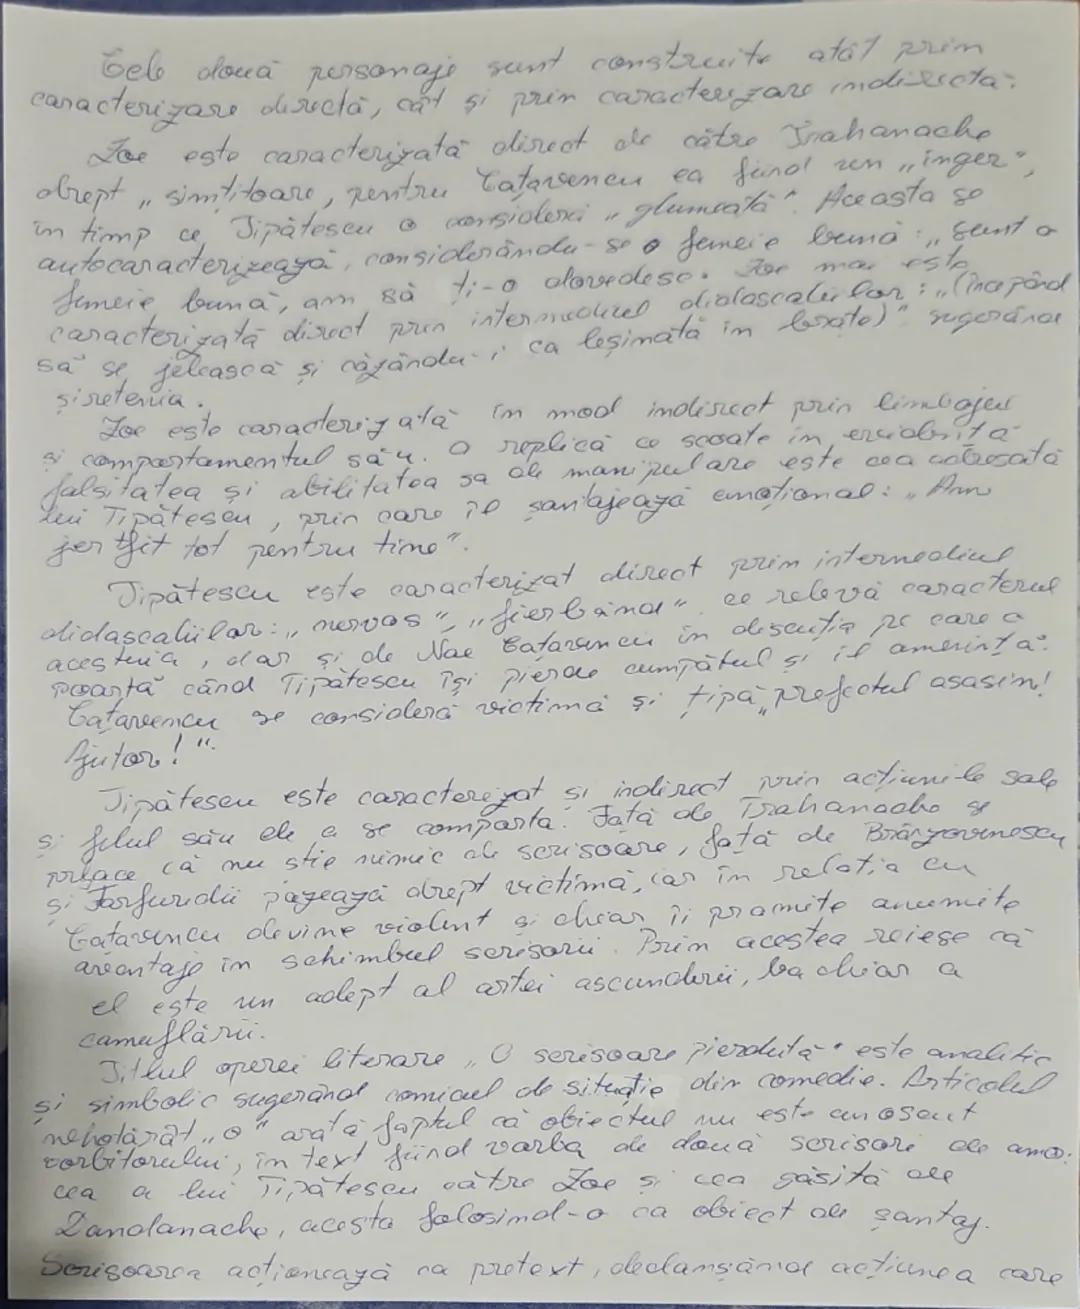 Cele două personaje sunt construite atât prin
caracterizare directă, cât și prin caracterizare indirectă.
Zoe este caracterizată direct de către Trahanache
drept „simțitoare, pentru Cațavencu ea fiind un „înger”,
în timp ce Tipătescu o consideră „glumeață”. Aceasta se
autocaracterizează, considerându-se o femeie bună: „Sunt o
femeie bună, am să ți-o dovedesc. Zoe mai este
caracterizată direct prin intermediul didascaliilor: „(începând
să se jelească și căzându-i ca leșinată în brațe)” sugerând
șiretenia.
Zoe este caracterizată în mod indirect prin limbajul
și comportamentul său. O replică ce scoate în evidență
falsitatea și abilitatea sa de manipulare este cea adresată
lui Tipătescu, prin care îl șantajează emoțional: „Am
jertfit tot pentru tine”.
Tipătescu este caracterizat direct prin intermediul
didascaliilor: „nervos”, „fierbând”, ce relevă caracterul
acestuia, dar și de Nae Cațavencu în discuția pe care o
poartă când Tipătescu își pierde cumpătul și îl amenință.
Cațavencu se consideră victimă și țipă „prefectul asasin!
Ajutor!”.
Tipătescu este caracterizat și indirect prin acțiunile sale
și felul său de a se comporta. Față de Trahanache se
preface că nu știe nimic de scrisoare, față de Brânzovenescu
și Farfuridi pozează drept victimă, iar în relația cu
Cațavencu devine violent și chiar îi promite anumite
avantaje în schimbul scrisorii. Prin acestea reiese că
el este un adept al artei ascunderii, ba chiar a
camuflării.
Titlul operei literare „O scrisoare pierdută” este analitic
și simbolic sugerând comicul de situație din comedie. Articolul
nehotărât „o” arată faptul că obiectul nu este cunoscut
vorbitorului, în text fiind vorba de două scrisori de amor:
cea a lui Tipătescu către Zoe și cea găsită de
Dandanache, acesta folosind-o ca obiect de șantaj.
Scrisoarea acționează ca pretext, declanșând acțiunea care